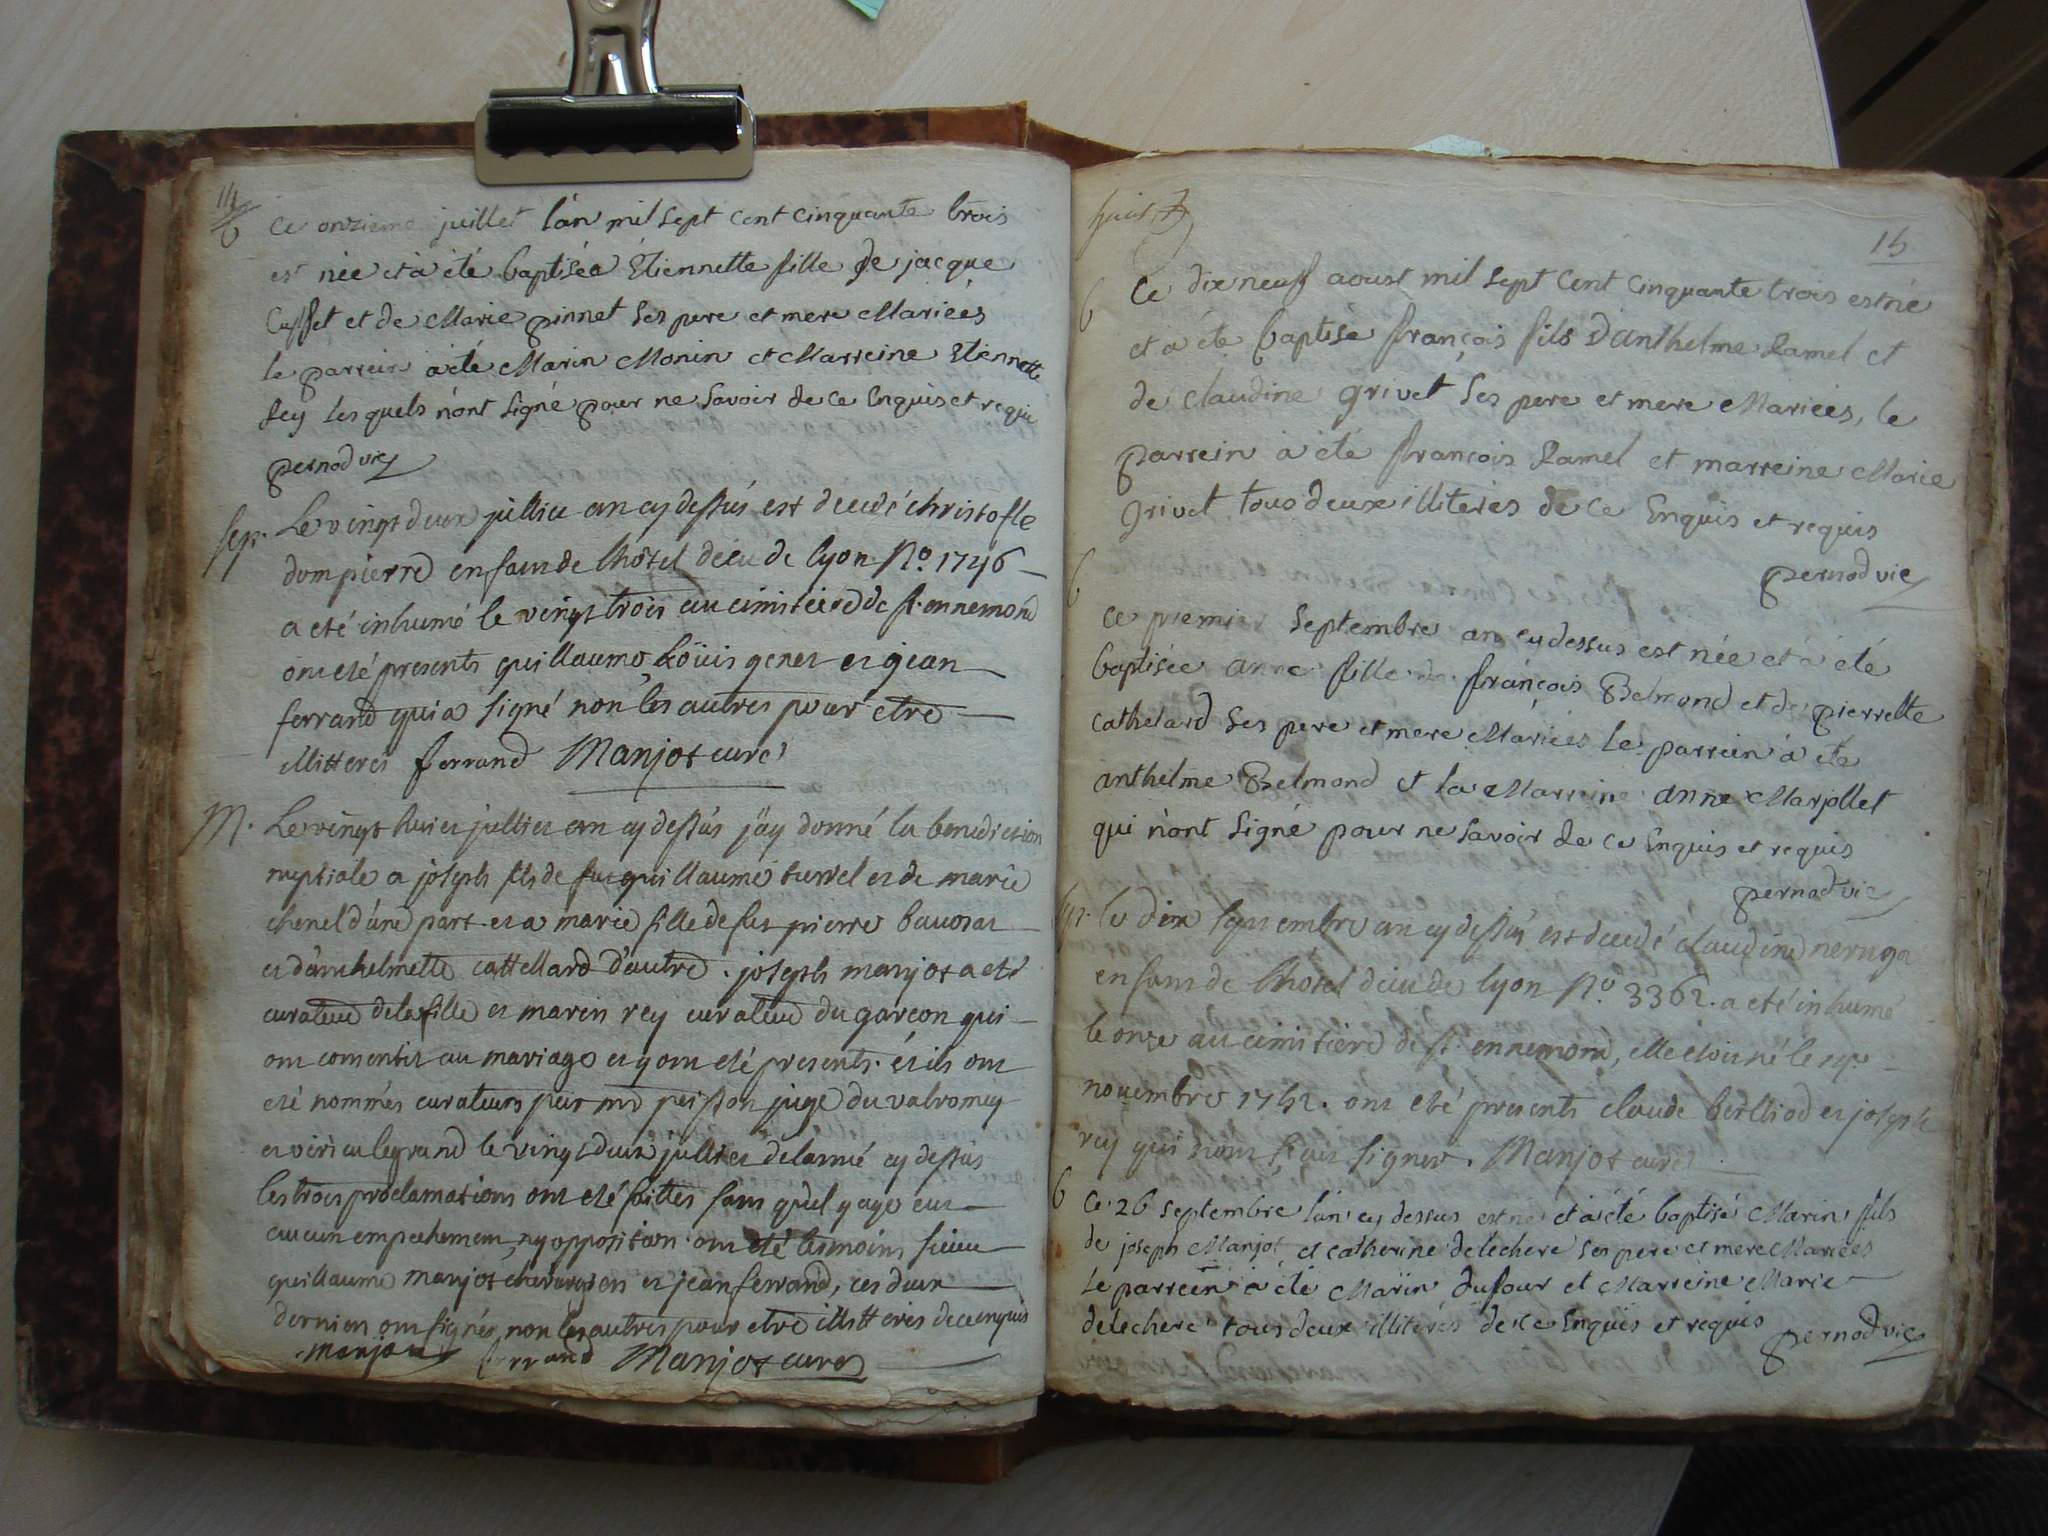 14
b
ce onzieme juillet l'an mil sept cent cinquante trois
est née et à été baptiséa Etiennette fille de jacque
Cusset et de Marie pinnet ses pere et mere Mariées
le parrein à été Marin Monin et Marreine Etiennette
Rey les quels n'ont signé pour ne savoir de ce Enquis et requis
pernod vic
sep. Le vingt deux juillier an cy dessus est decedé christofle
dompierre enfant de lhôtel dieu de lyon No. 1746
a eté inhumé le vingt trois au cimitiere de st. ennemond
ont eté presents guillaume, Loüis genet et jean
ferrand qui a signé non les autres pour etre
illitteres ferrand Manjot curé
M. Le vingt huict jullier an cy dessus j'ay donné la benediction
nuptiale a joseph fils de fut guillaume turrel et de marie
chenel d'une part et a marie fille de fut pierre bavosat
et d'anthelmette cattellard d'autre. joseph manjot a eté
curateur de la fille et marin rey curateur du garcon qui
ont consentis au mariage et y ont eté presents. et ils ont
eté nommés curateurs par mr peisson juge du valromey
et virieu le grand le vingt deux jullier de lanné cy dessus
les trois proclamations ont eté faittes sans qu'il y aye eut
aucun empechement, ny opposition ont eté tesmoins sieur
guillaume manjot chirurgien et jean ferrand, ces deux
dernien ont signés non les autres pour etre illitteres de ce enquis
manjot ferrand Manjot curé
huit
15
b
Ce dix neuf aoust mil sept cent cinquante trois est né
et a été baptisé françois fils D'anthelme Ramel et
de claudine grivet ses pere et mere Mariées, le
parrein à été françois Ramel et marreine Marie
grivet tous deux illiterés de ce Enquis et requis
pernod vic
b
Ce premier septembre an cy dessus est née et à été
baptisée anne fille de françois Belmond et de pierrette
cathelard ses pere et mere Mariées le parrein à été
anthelme Belmond et la Marreine anne Marjollet
qui n'ont signé pour ne savoir de ce Enquis et requis
pernod vic
sep. le dix septembre an cy dessus est decedé claudine neruga
enfant de lhotel dieu de lyon No. 3362. a eté inhumé
le onze au cimitiere de st. ennemond, elle etoit né le
novembre 1752. ont eté presents claude berlliod et joseph
rey qui n'ont sceu signer. Manjot curé
b
Ce 26 septembre l'an cy dessus est né et à été baptisé Marin fils
de joseph Manjot et catherine delechere ses pere et mere Mariées
le parrein à été Marin dufour et Marreine Marie
delechere tous deux illiterés de ce Enquis et requis
pernod vic